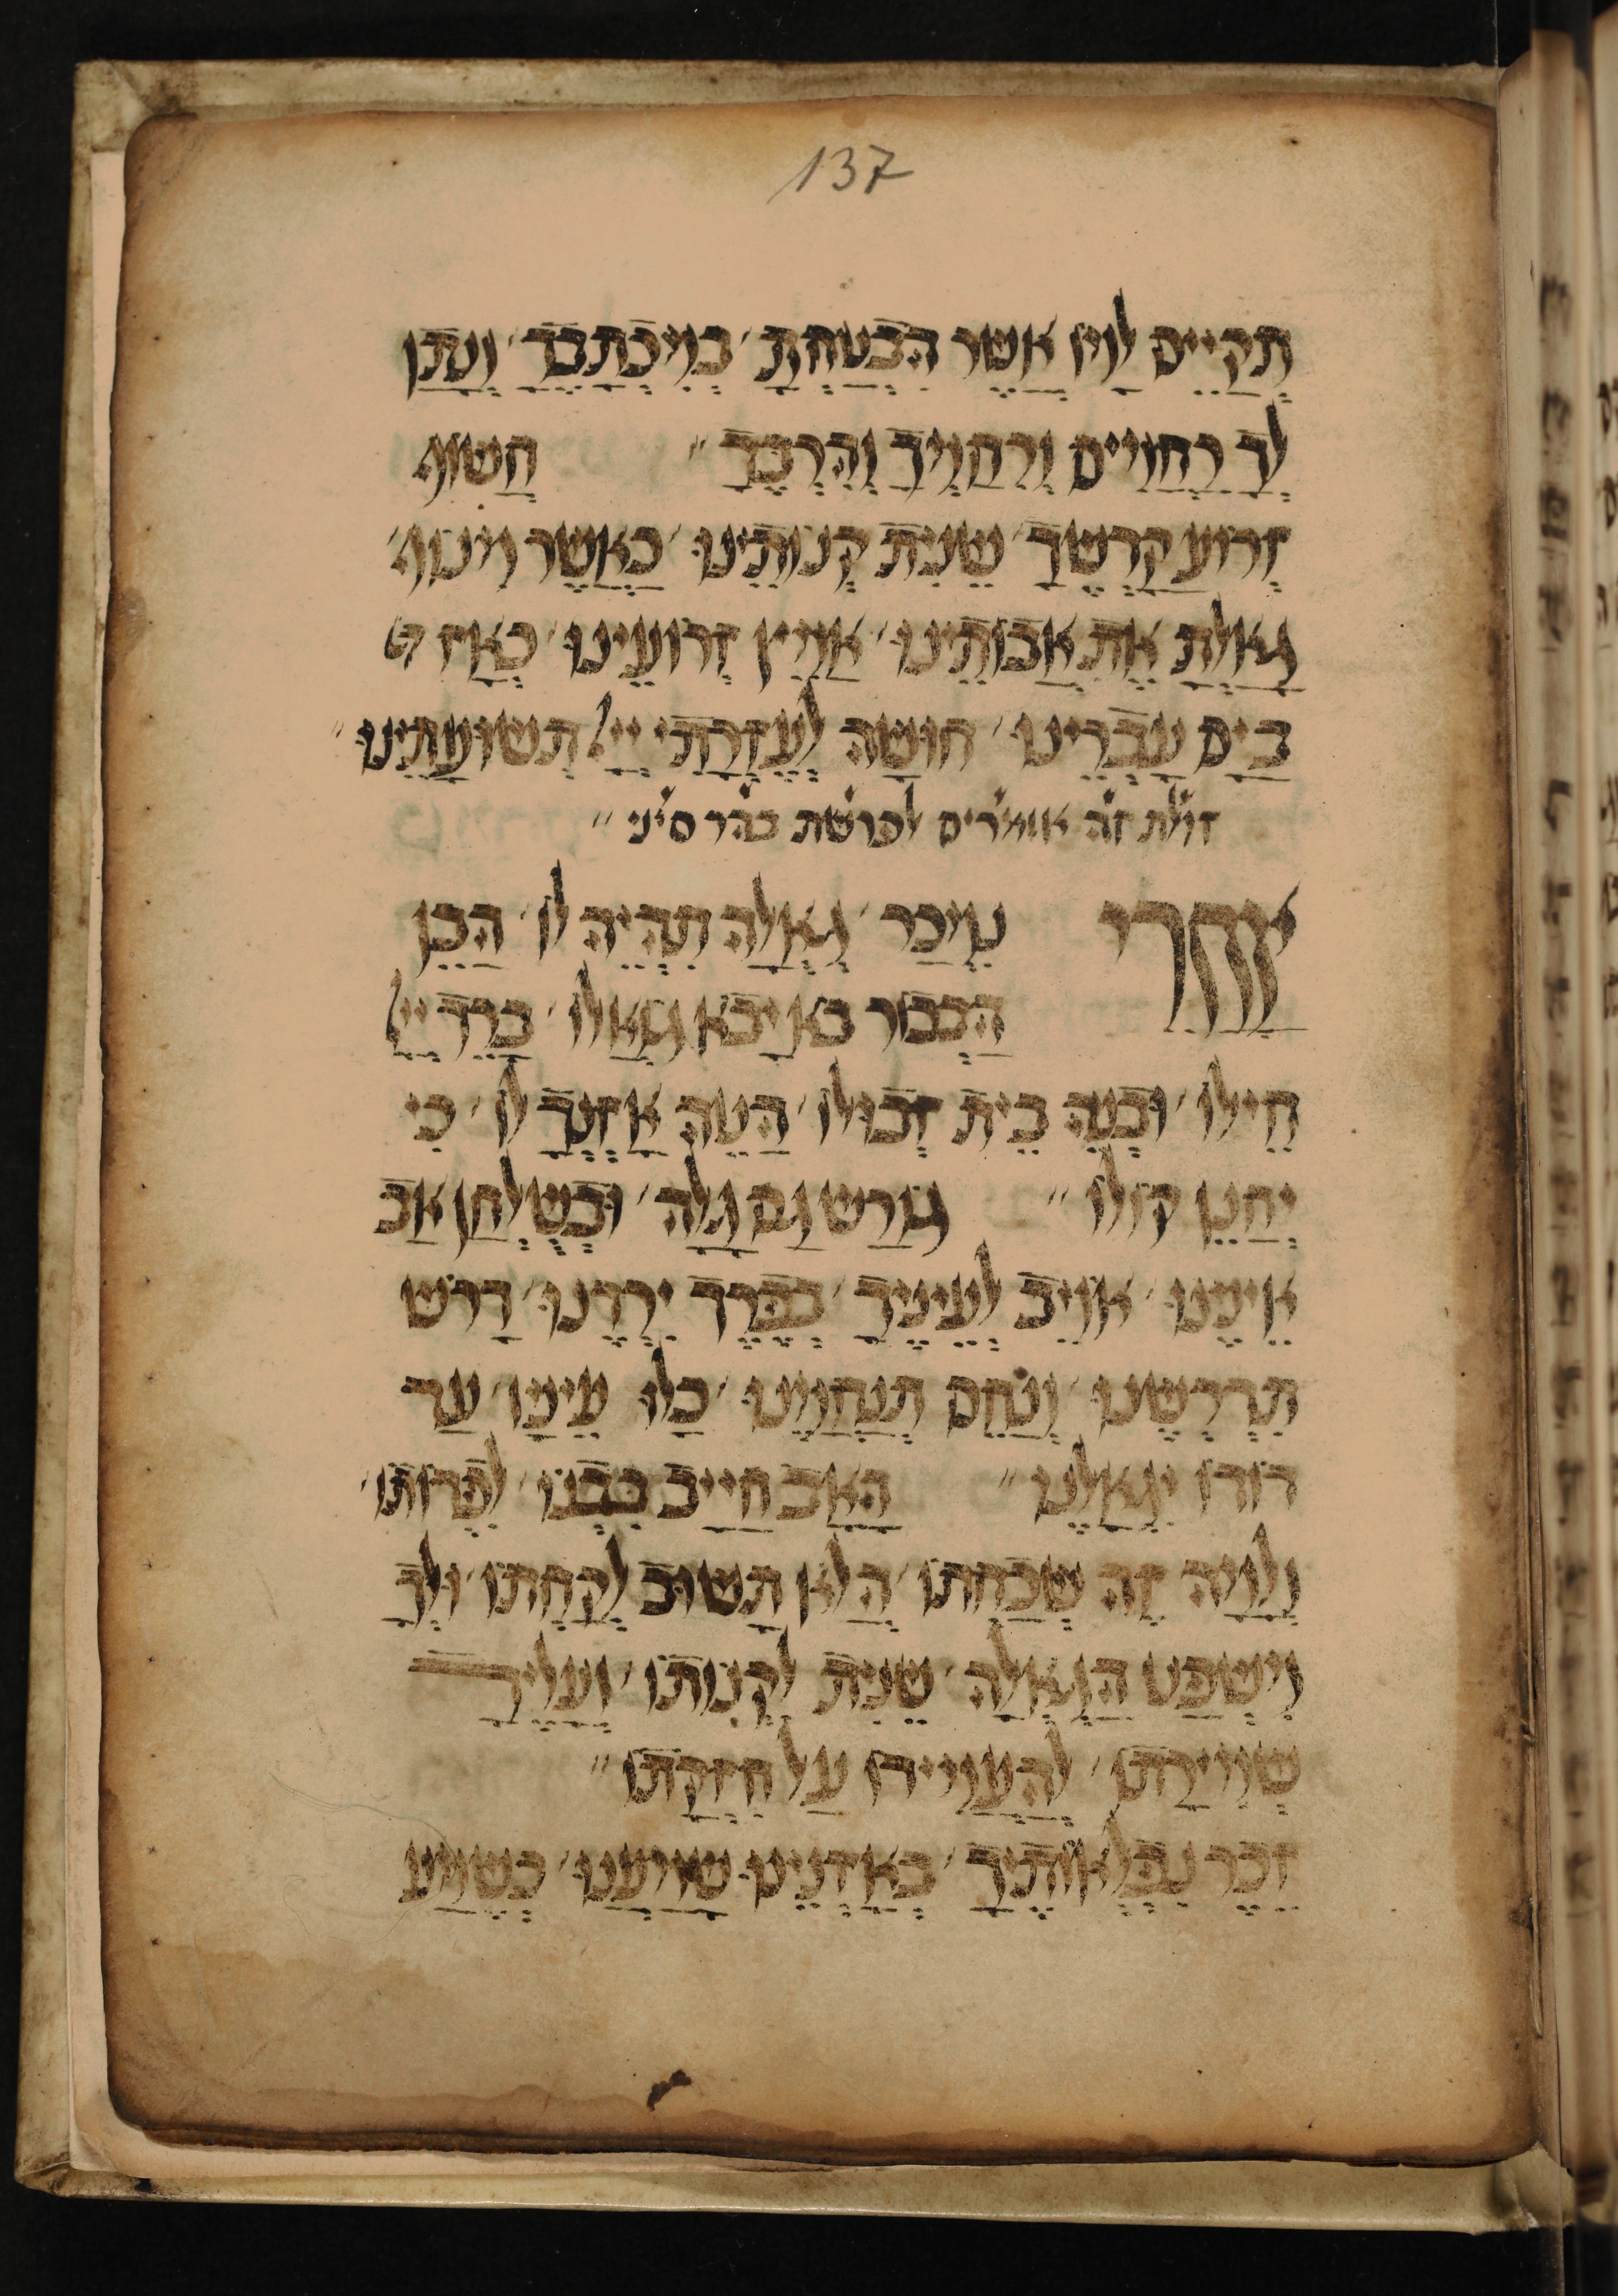 137
תְקַיֵים לָנוּ אֲשֶר הִבְטַחְתָ׳ כְמִכְתָבֶךָ׳ וְנָתַן
לְךָ רַחֲמִים וְרִחַמְךָ וְהִרְבֶךָ״ חֲשׂוֹף
זְרוֹעַ קָדְשֶךָ׳ שֵנִית קְנוֹתֵינוּ׳ כַאֲשֶר מִנוֹף
גָאַלְתָ אֶת אֲבוֹתֵינוּ׳ אַמֵץ זְרוֹעֵינוּ׳ כְאָז
בַיָם עָבְרֵינוּ׳ חוּשָה לְעֶזְרָתִי יְיָ׳ תְשוּעָתֵינוּ״
זולת זה אומרים לפרשת בהר סיני״
אַחֲרֵי נִמְכַר׳ גְאֻלָה תִהְיֶה לוֹ׳ הֲכֵן
הַבְכוֹר בֹא יָבֹא גֹאֲלוֹ׳ בָרֵךְ יְיָ
חֵילוֹ׳ וּבְנֵה בֵית זְבוּלוֹ׳ הַטֵה אָזְנְךָ לוֹ׳ כִי
יְחַנֵן קוֹלוֹ״ גוֹרַש גַם גָלָה׳ וּבְשֻלְחַן אָב
אֵינֶנוּ׳ אוֹיֵב לְעֵינֶיךָ׳ בְפֶרֶךְ יִרְדֶנוּ׳ דָרוֹש
תִדְרְשֶנוּ׳ וְנַחֵם תְנַחֲמֶנוּ׳ כַלוּ עֵינָיו׳ עַד
דוֹדוֹ יִגְאָלֶנוּ״ הָאָב חַיָיב בִבְנוֹ׳ לִפְדוֹתוֹ׳
וְלָמָה זֶה שְכַחְתוֹ׳ הֲלֹא תָשוּב לְקַחְתוֹ׳ וּלְךָ
מִשְפַט הַגְאֻלָה׳ שֵנִית לִקְנוֹתוֹ׳ וְעָלֶיךָ
שְמִירָתוֹ׳ לְהַעֲמִידוֹ עַל חֶזְקָתוֹ״
זֵכֶר נִפְלְאוֹתֶיךָ׳ בְאָזְנֵינוּ שָמַעְנוּ׳ כְשֵמַע